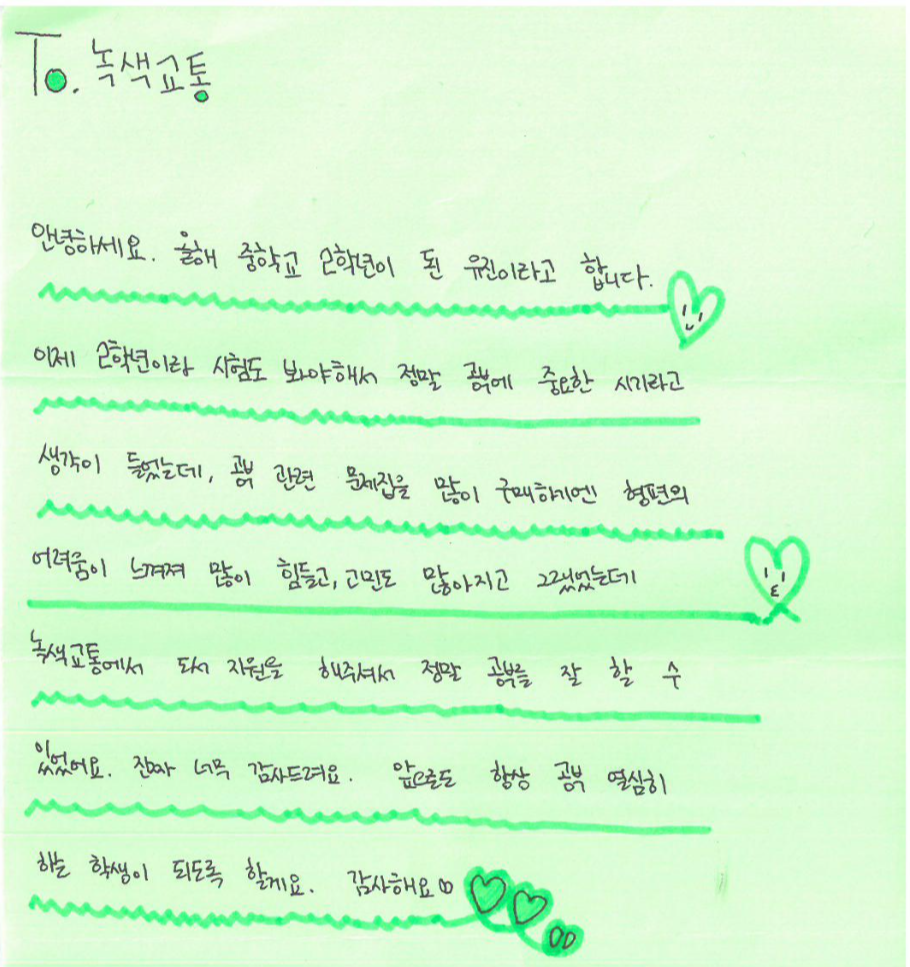 To. 녹색교통
안녕하세요. 올해 중학교 2학년이 된 유진이라고 합니다.
이제 2학년이랑 시험도 봐야해서 정말 공부에 중요한 시기라고
생각이 들었는데, 공부 관련 문제집을 많이 구매하기엔 형편의
어려움이 느껴져 많이 힘들고, 고민도 많아지고 그랬었는데
녹색교통에서 도서 지원을 해주셔서 정말 공부를 잘 할 수
있었어요. 진짜 너무 감사드려요. 앞으로도 항상 공부 열심히
하는 학생이 되도록 할게요. 감사해요